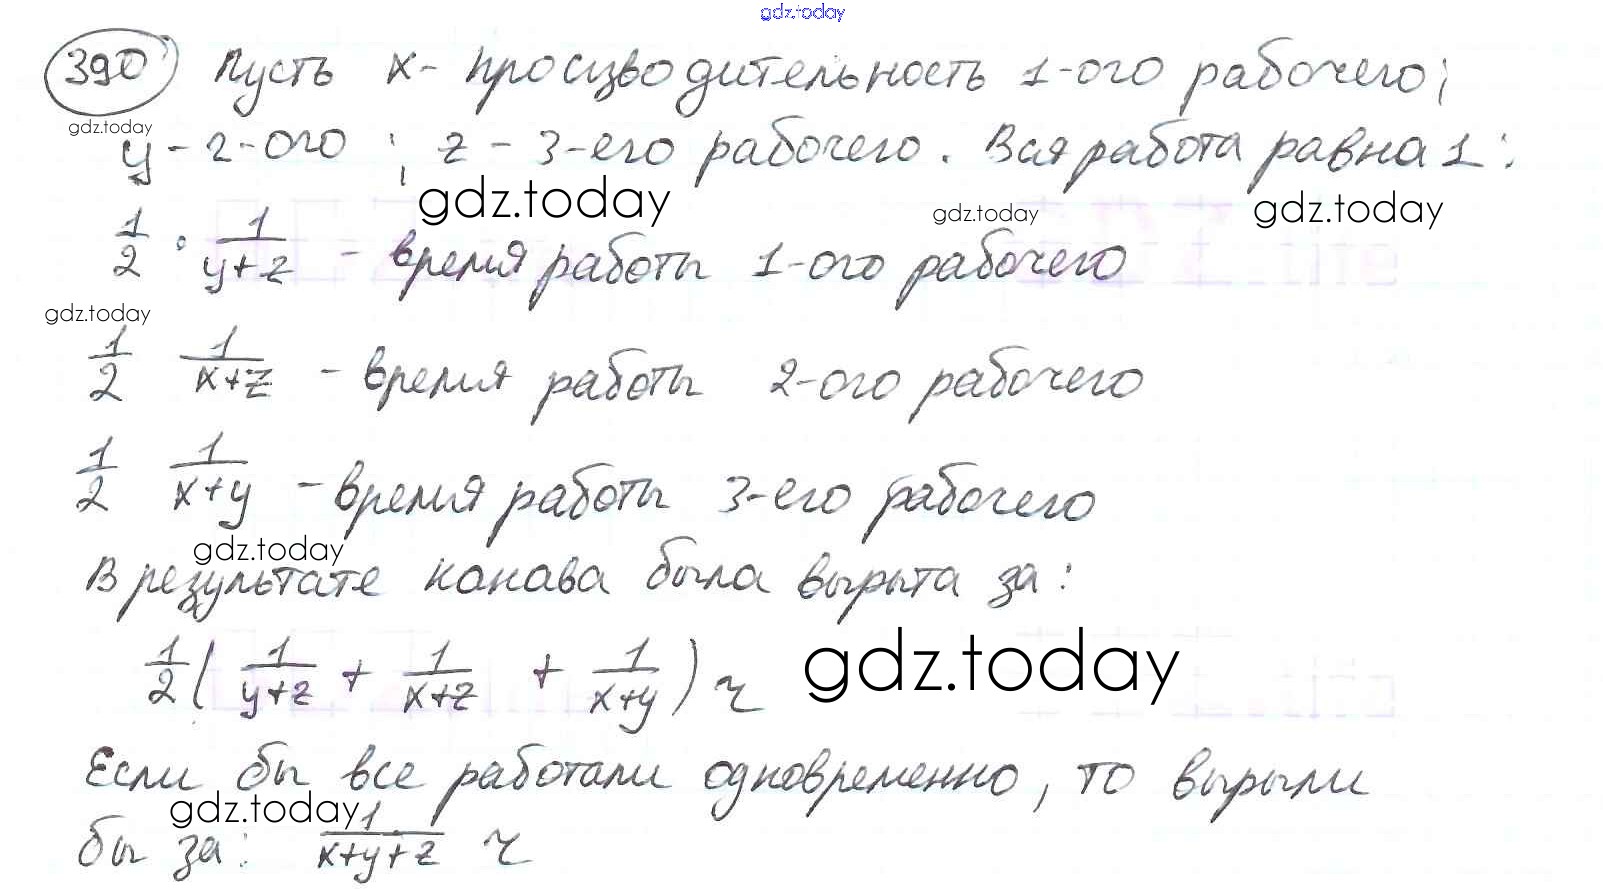 gdz.today
390 Пусть x - производительность 1-ого рабочего;
gdz.today
y - 2-ого ; z - 3-его рабочего. Вся работа равна 1:
gdz.today gdz.today gdz.today
1/2 · 1/(y+z) - время работы 1-ого рабочего
gdz.today
1/2 1/(x+z) - время работы 2-ого рабочего
1/2 1/(x+y) - время работы 3-его рабочего
gdz.today
В результате канава была вырыта за:
1/2 ( 1/(y+z) + 1/(x+z) + 1/(x+y) ) ч
gdz.today
Если бы все работали одновременно, то вырыли
gdz.today
бы за: 1/(x+y+z) ч